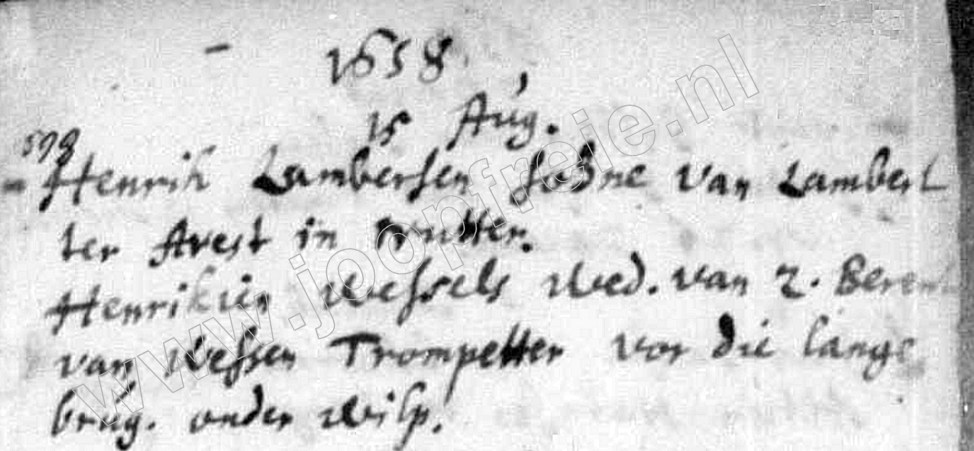 1658
15 Aug.
598
Henrik Lambersen sohne van Lambert
ter Avest in
Henrikien Wessels Wed. van Z. Beren
van Wessen Trompetter vor die lange
brug. onder Wilp.
www.joopfreie.nl